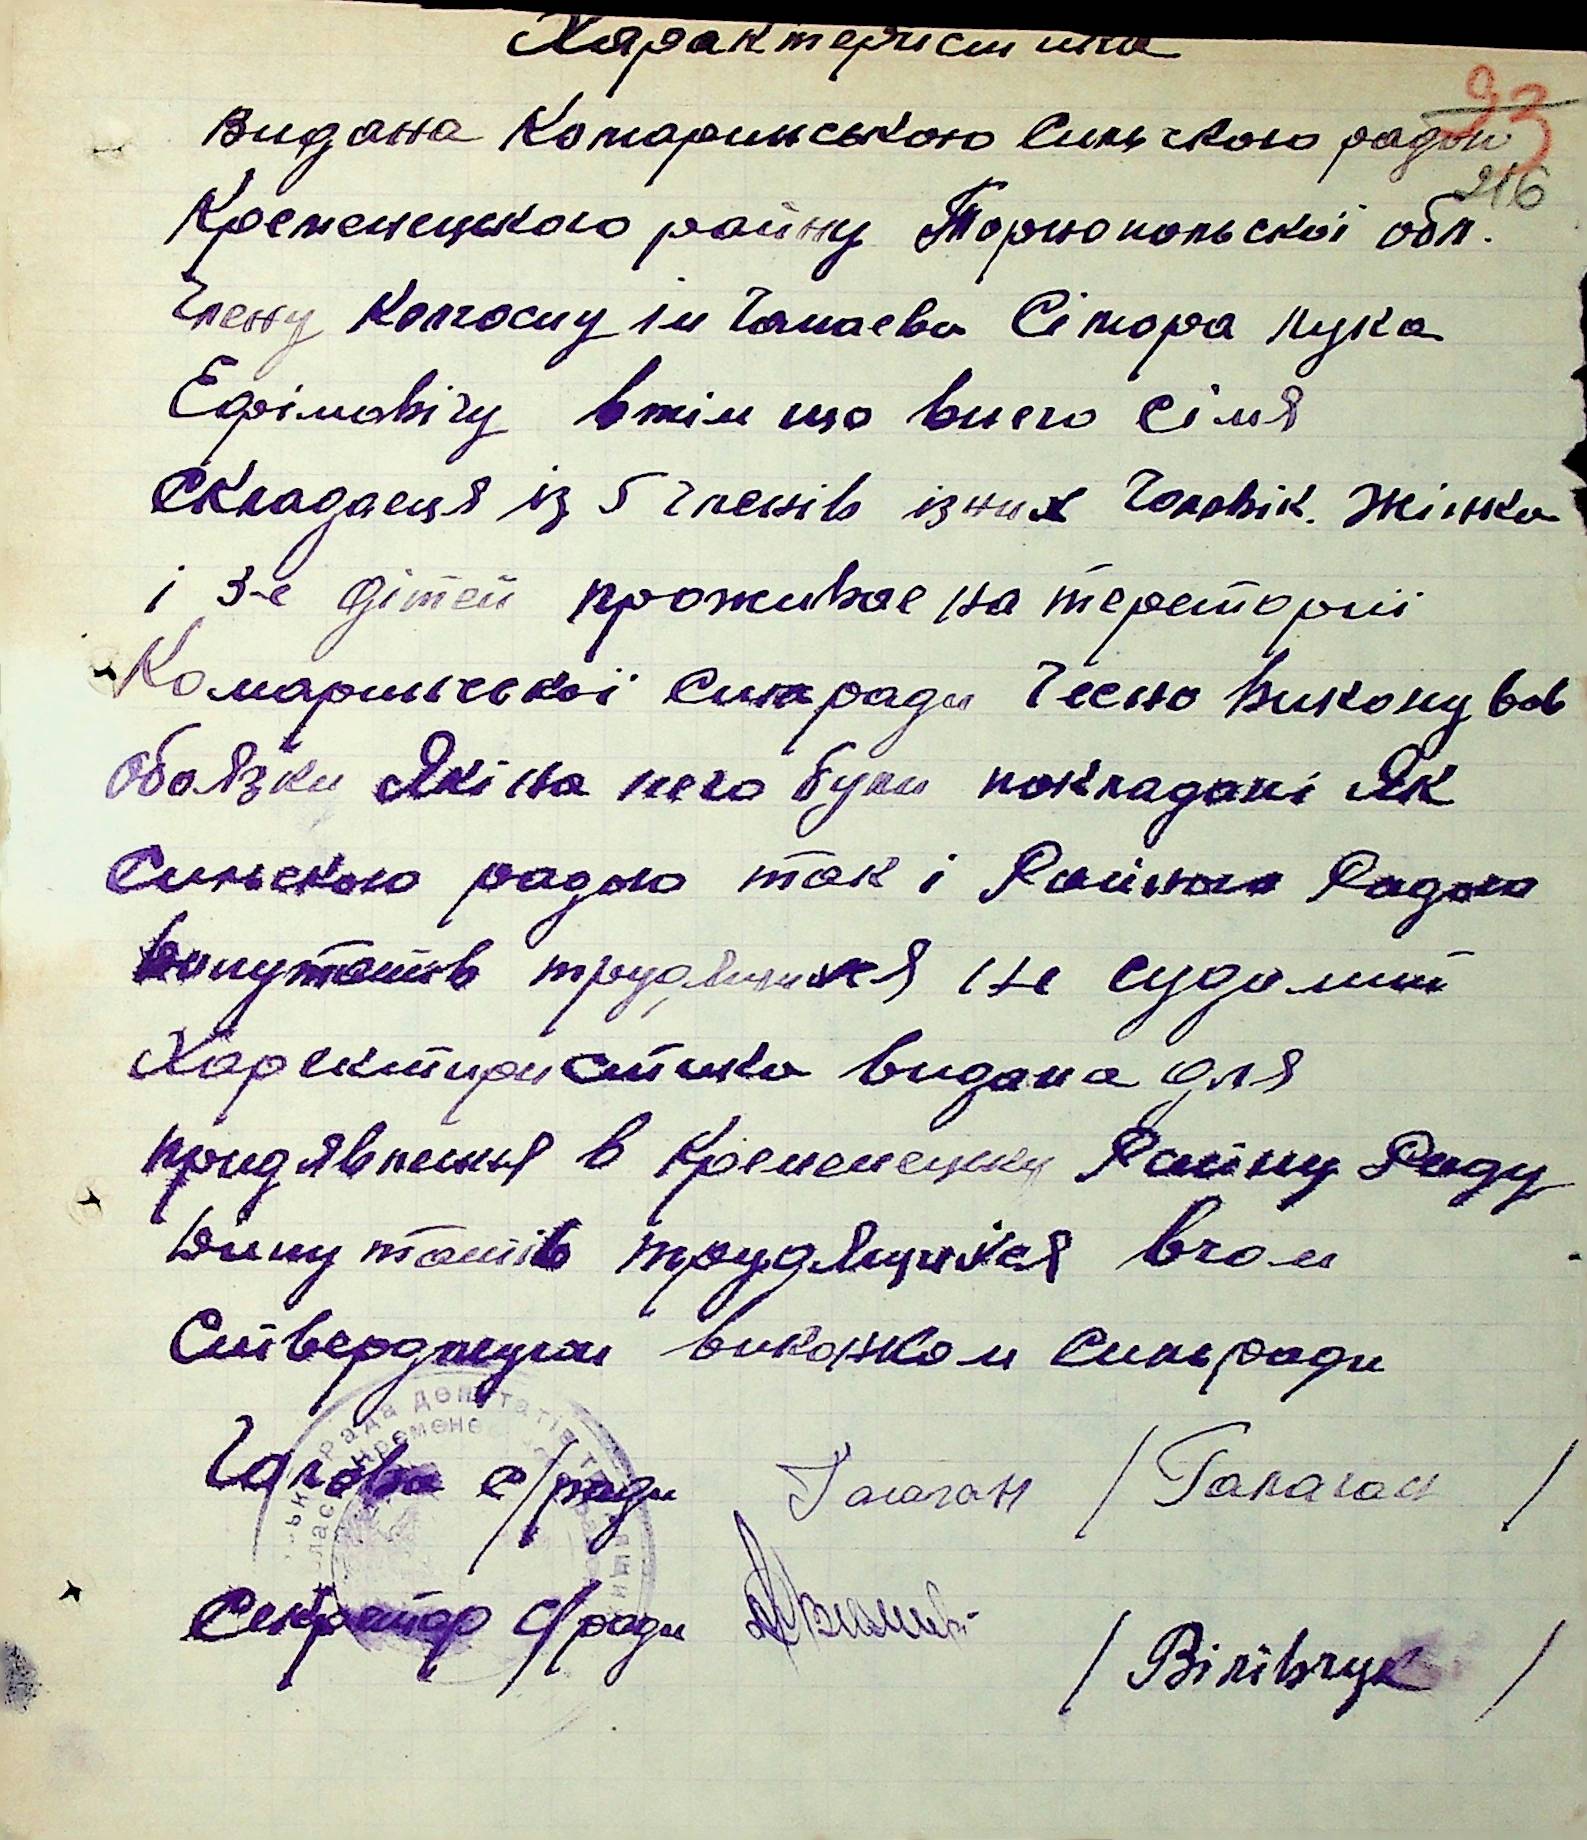 Характеристика
93
Видана Комаринською Сильською радою
216
Кременецького району Торнопольскої обл.
Члену Колгоспу ім Чапаева Сітора Лука
Ефімовічу втім що внего сімя
складаеця із 5 членів ізних Чоловік. Жінка
і 3-е дітей проживае на тереторії
Комаринської Сильради Чесно Виконував
обоязки Які на него були покладані Як
Сильскою радою так і Районою Радою
Депутатів трудящихся не судимий
Харектиристика видана для
придявлення в Кременецку Райну Раду
Діпутатів трудящихся вчом
Стверджуем виконком Сильради
Голова с/ради Галаган / Галаган /
Секретар с/ради / Вілівчук /